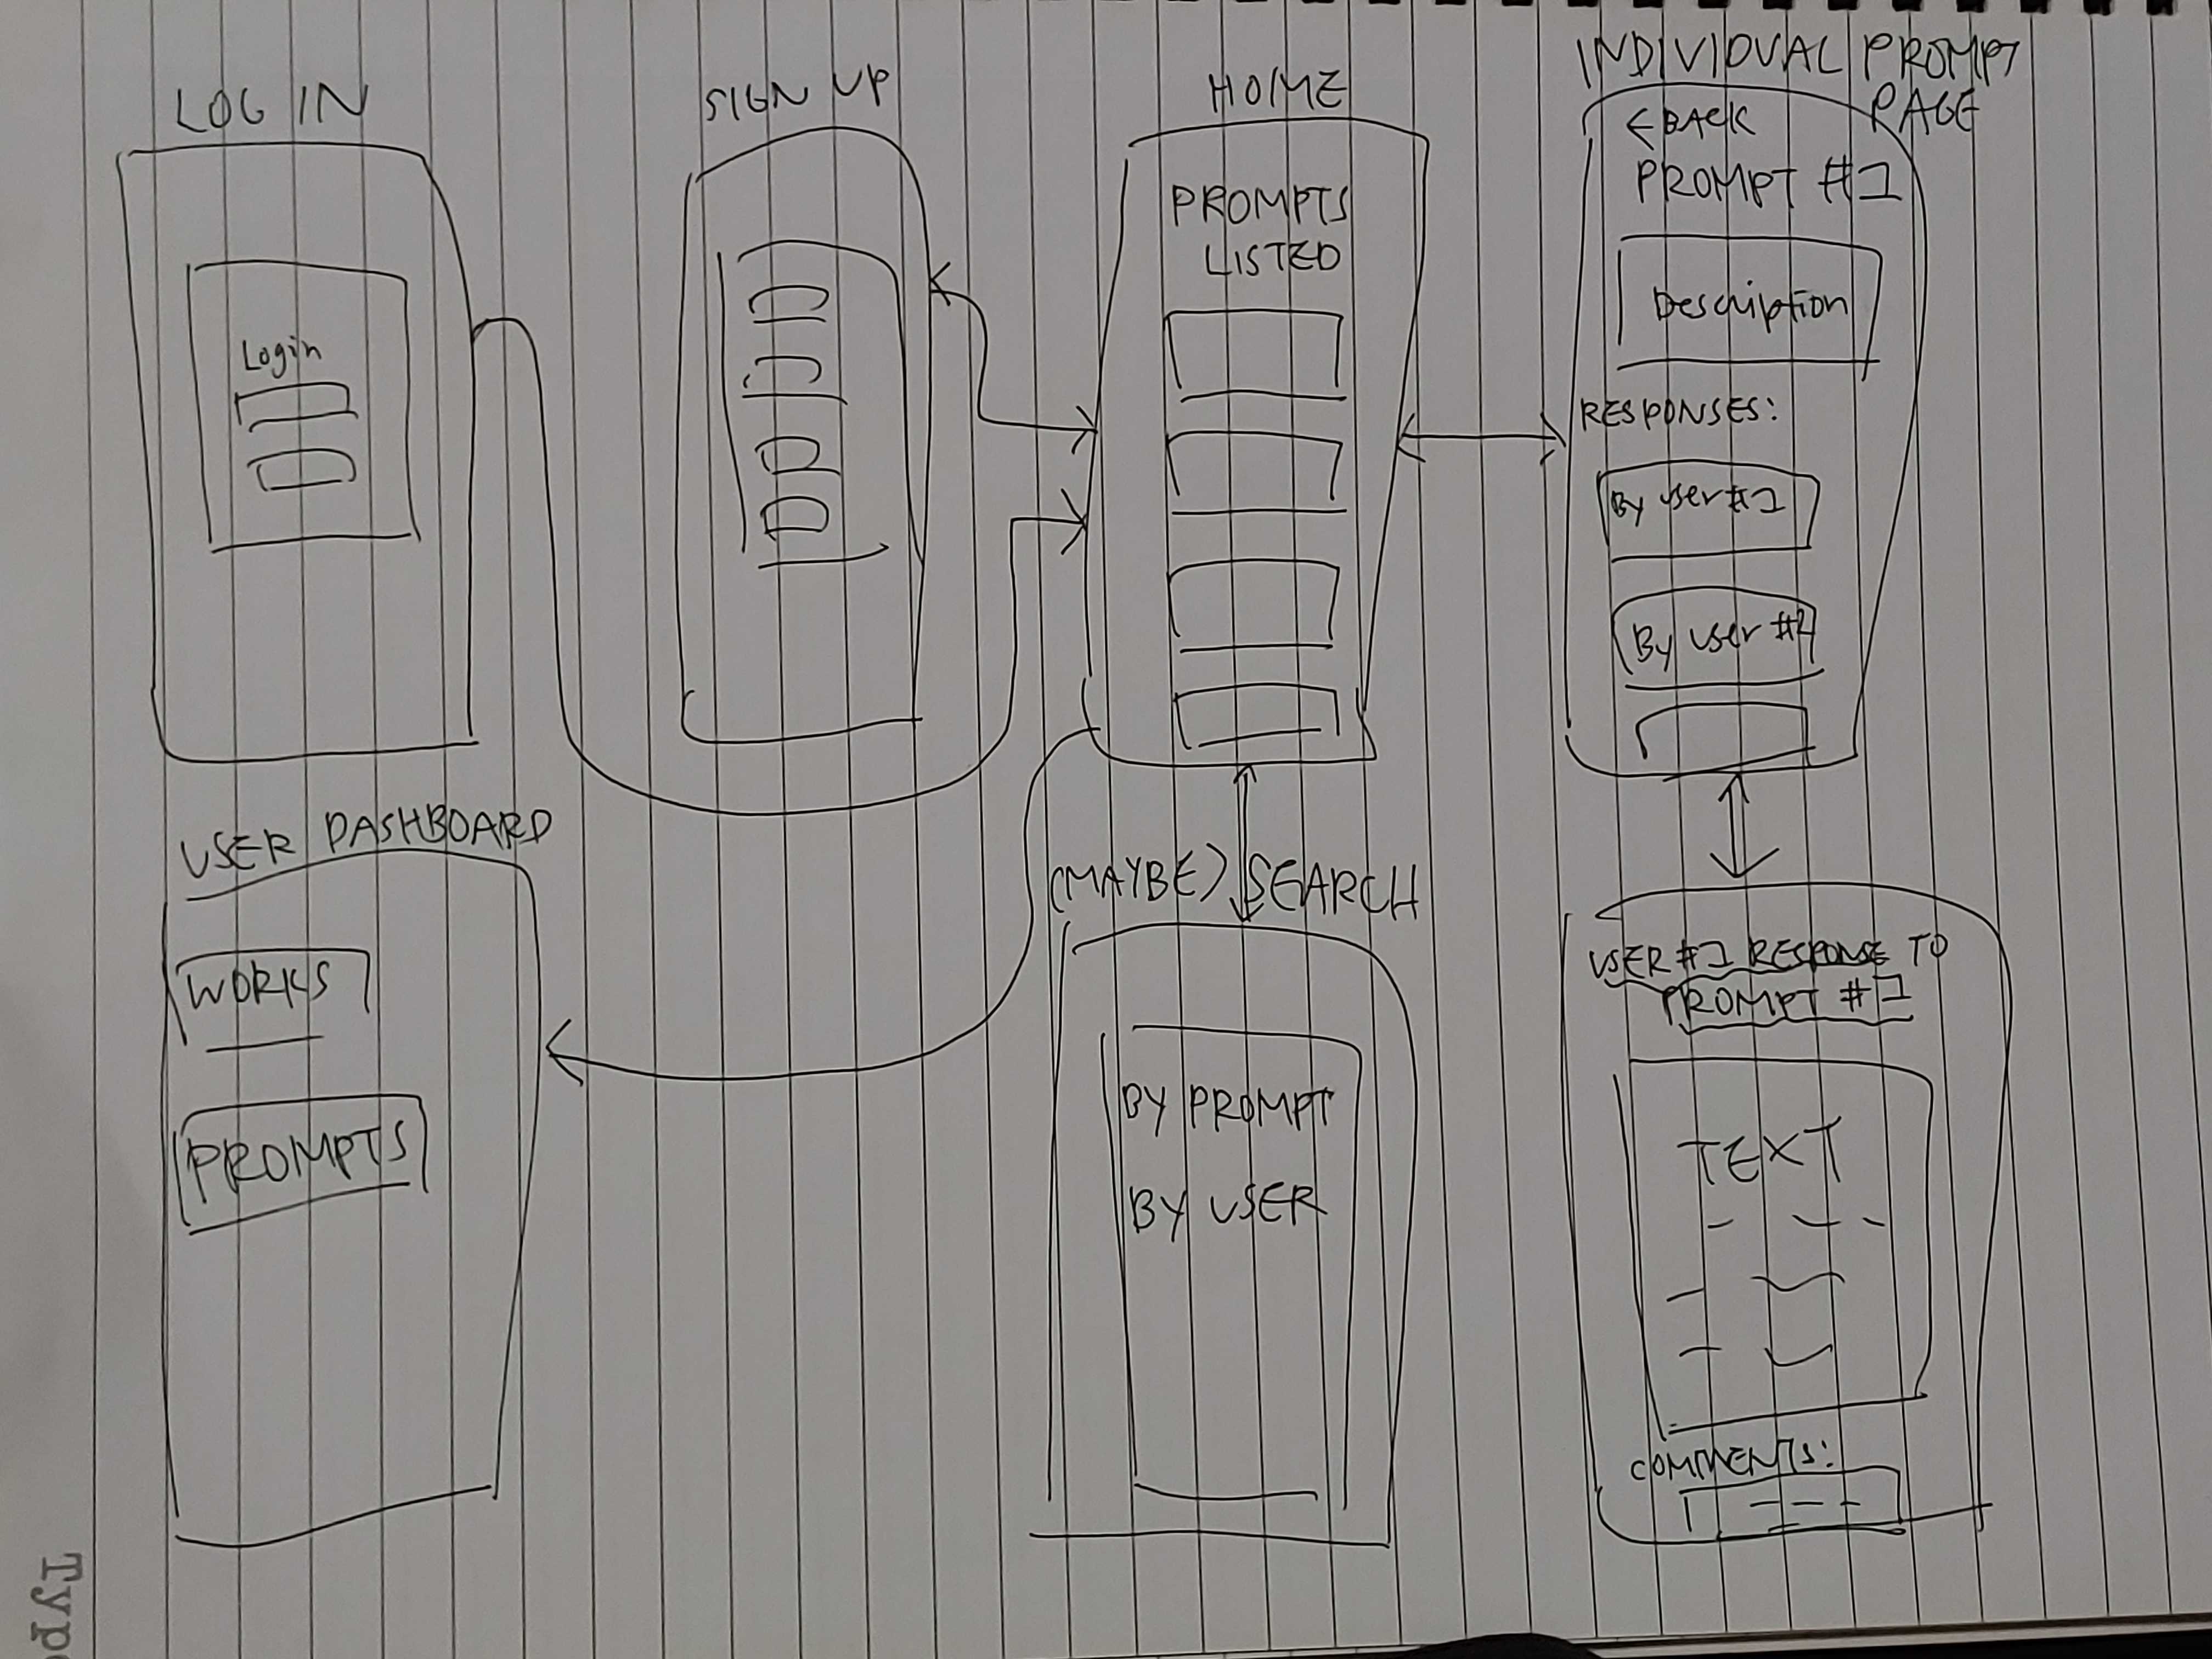 LOG IN
Login
SIGN UP
HOME
PROMPTS
LISTED
INDIVIDUAL PROMPT
PAGE
← BACK
PROMPT #1
Description
RESPONSES:
By user #1
By user #2
USER DASHBOARD
WORKS
PROMPTS
(MAYBE) SEARCH
BY PROMPT
BY USER
USER #1 RESPONSE TO
PROMPT #1
TEXT
COMMENTS:
Typo